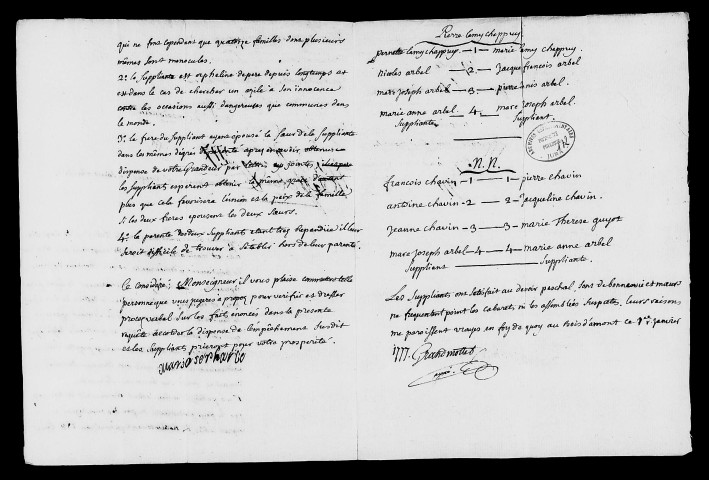 qui ne font cependant que quatorze familles dont plusieurs
mêmes sont monocules.
2.° le Suppliante est orpheline de pere depuis longtemps et
est dans le cas de chercher un azile à son innocence
contre les occasions aussi dangereuses que communes dans
le monde.
3.° le frere du Suppliant ayant épousé la Sœur de la Suppliante
dans les mêmes dégrés après en avoir obtenu
dispense de votre Grandeur
les suppliants esperent obtenir la même grace d'autant
plus que cela favorisera l'union et la paix de la famille
si les deux freres epousent les deux Sœurs.
4.° la parenté des deux Suppliants etant tres repandüe il leur
seroit difficile de trouver à s'établir hors de leur parenté.
Ce consideré, Monseigneur, il vous plaise commettre telle
personne que vous jugerés à propos pour verifier et dresser
procès verbal sur les faits enoncés dans la presente
requête accorder la dispense de l'empêchement susdit
et les Suppliants prieront pour votre prosperité.
marie joseph arbel
Pierre lamy chappuy
pernette lamy chappuy — 1 — marie lamy chappuy.
Nicolas arbel — 2 — Jacque françois arbel
marc Joseph arbel — 3 — pierre anés arbel.
marie anne arbel — 4 — marc Joseph arbel.
Suppliante Suppliant.
N. N.
françois chavin — 1 — 1 — pierre chavin
antoine chavin — 2 — 2 — Jacqueline chavin.
Jeanne chavin — 3 — 3 — marie Therese guyot
marc Joseph arbel — 4 — 4 — marie anne arbel
Suppliant Suppliante.
Les Suppliants ont satisfait au devoir paschal, sont de bonne vie et mœurs
ne frequentent point les cabarets, ni les assemblées suspectes, leurs raisons
me paroissent vrayes en foy de quoy au bois d'amont ce 1er Janvier
1777. Grandmottet